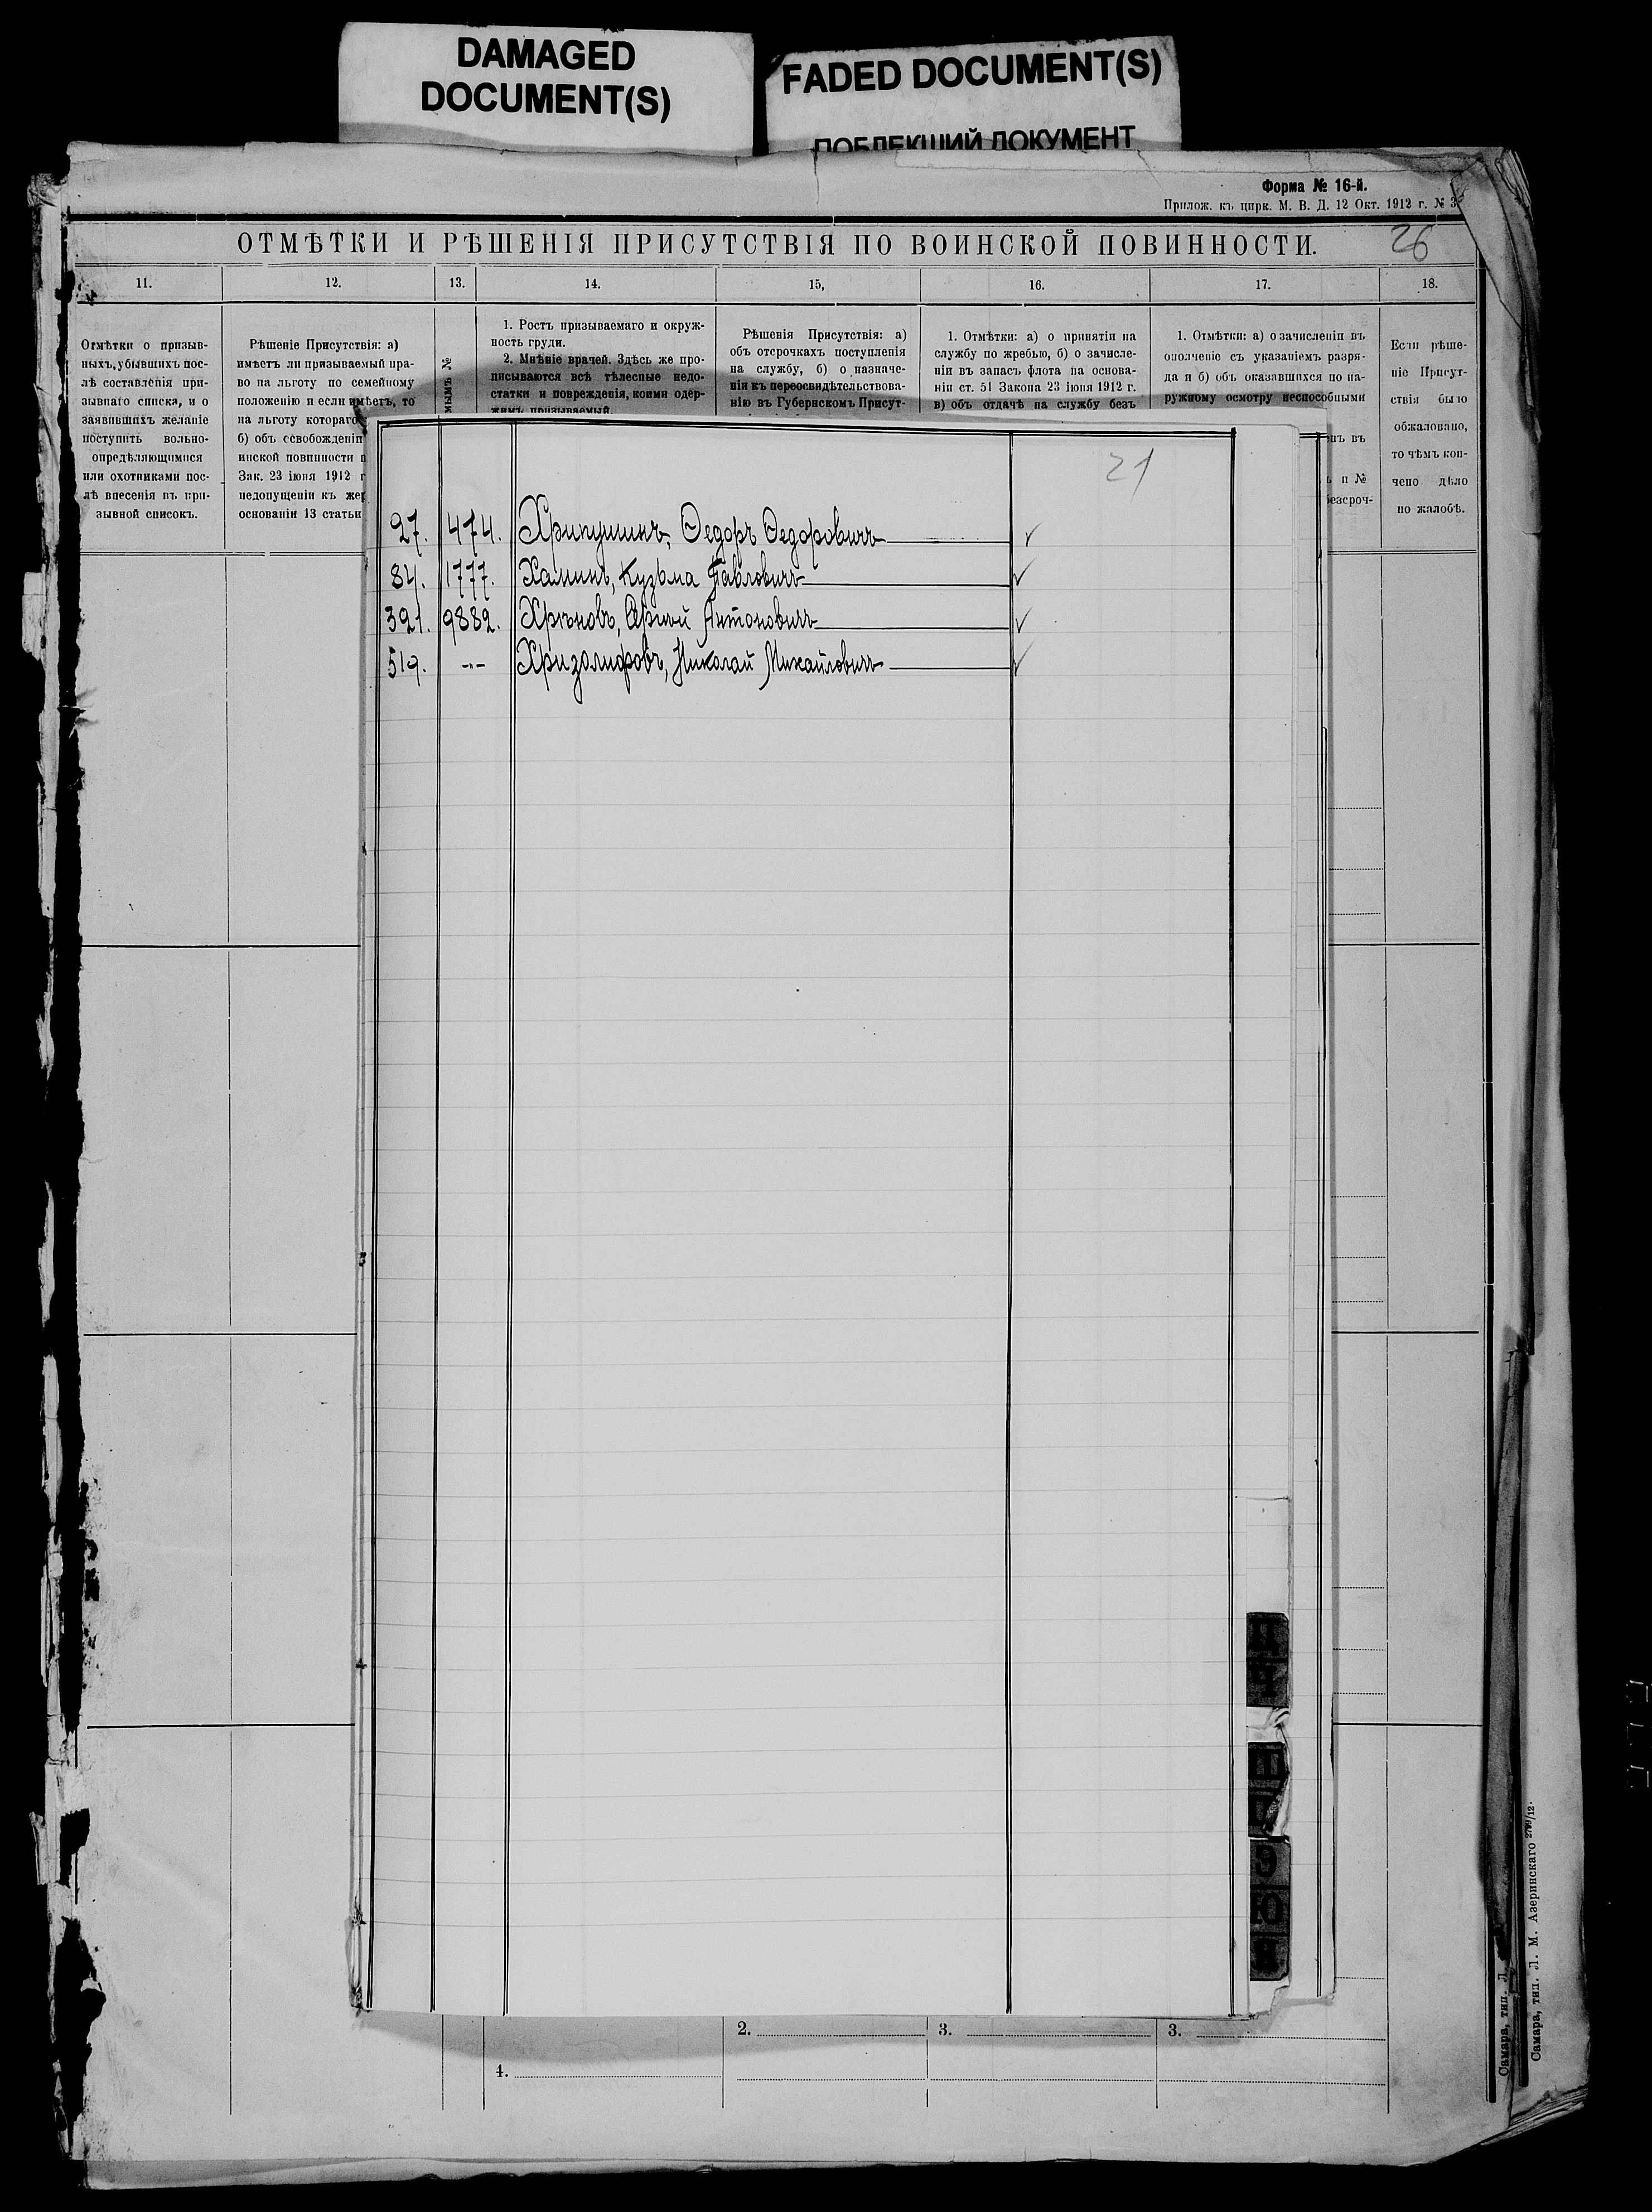 DAMAGED
DOCUMENT(S)
FADED DOCUMENT(S)
ПОБЛЕКШИЙ ДОКУМЕНТ
Форма № 16-й.
Прилож. къ цирк. М. В. Д. 12 Окт. 1912 г. № 3
ОТМѢТКИ И РѢШЕНІЯ ПРИСУТСТВІЯ ПО ВОИНСКОЙ ПОВИННОСТИ.
26
11. 12. 13. 14. 15, 16. 17. 18.
Отмѣтки о призыв-
ныхъ, убывшихъ пос-
лѣ составленія при-
зывнаго списка, и о
заявившихъ желаніе
поступить вольно-
опредѣляющимися
или охотниками пос-
лѣ внесенія въ при-
зывной списокъ.
Рѣшеніе Присутствія: а)
имѣетъ ли призываемый пра-
во на льготу по семейному
положенію и если имѣетъ, то
на льготу котораго
б) объ освобожденіи
инской повинности п
Зак. 23 іюня 1912 г
недопущеніи къ жер
основаніи 13 статьи
мымъ №
1. Ростъ призываемаго и окруж-
ность груди.
2. Мнѣніе врачей. Здѣсь же про-
писываются всѣ тѣлесные недо-
статки и поврежденія, коими одер-
жимъ призываемый.
Рѣшенія Присутствія: а)
объ отсрочкахъ поступленія
на службу, б) о назначе-
ніи къ переосвидѣтельствова-
нію въ Губернскомъ Присут-
1. Отмѣтки: а) о принятіи на
службу по жребью, б) о зачисле-
ніи въ запасъ флота на основа-
ніи ст. 51 Закона 23 іюня 1912 г.
в) объ отдачѣ на службу безъ
1. Отмѣтки: а) о зачисленіи въ
ополченіе съ указаніемъ разря-
да и б) объ оказавшихся по на-
ружному осмотру неспособными
въ
и №
безсроч-
Если рѣше-
ніе Присут-
ствія было
обжаловано,
то чѣмъ кон-
чено дѣло
по жалобѣ.
21
27. 474. Хрипунинъ, Ѳедоръ Ѳедоровичъ
84. 1777. Хаминъ, Кузьма Павловичъ
321. 9882. Хрѣновъ, Антоновичъ
519. -"- Хризолифовъ, Николай Михайловичъ
2. 3. 3.
4.
Самара, тип. Л.
Самара, тип. Л. М. Азеринскаго